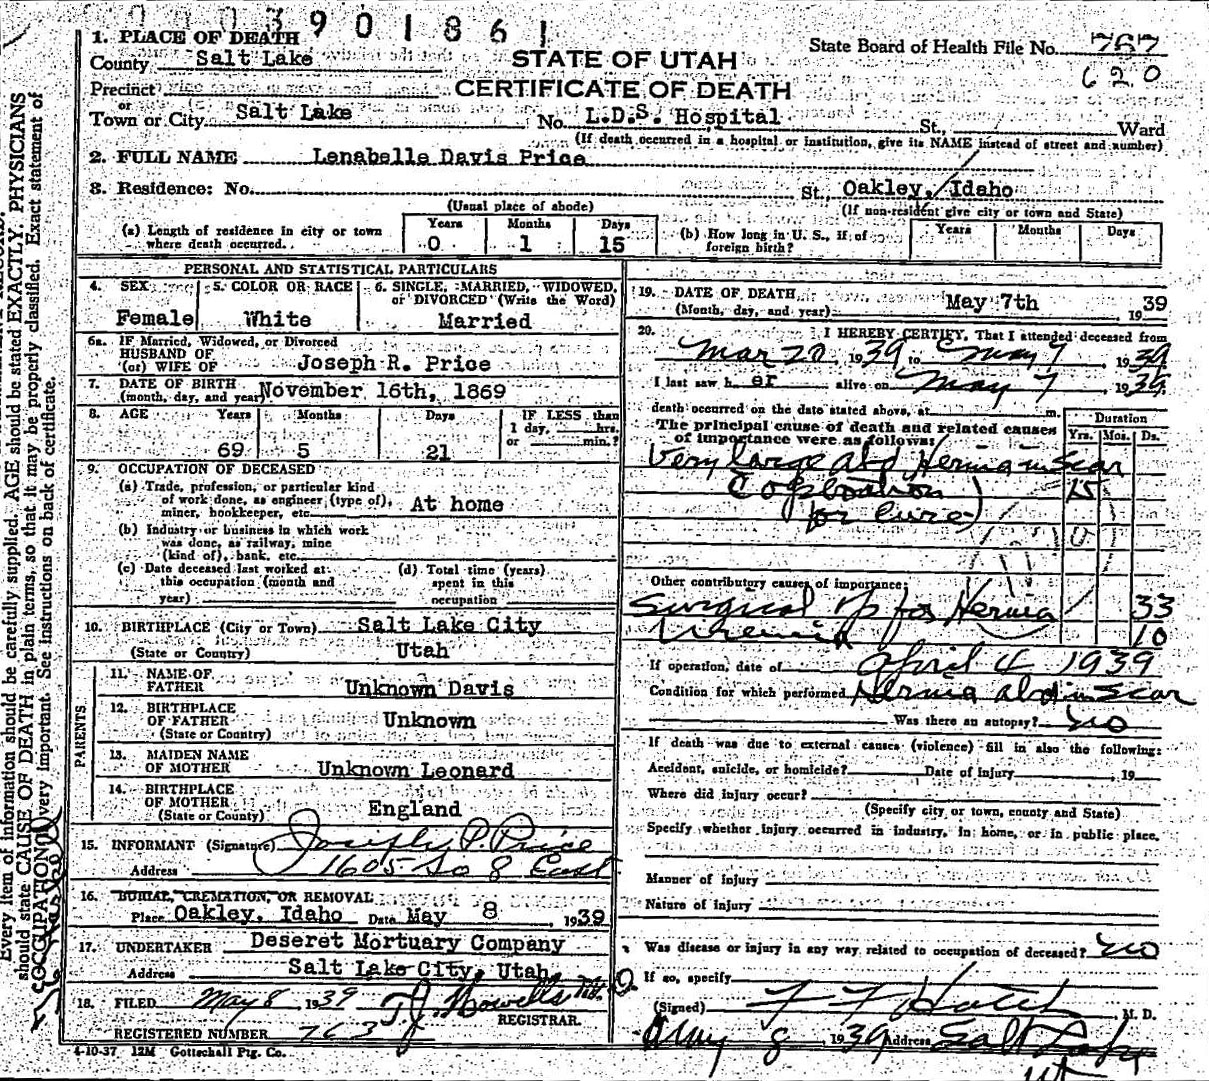 3901861
1. PLACE OF DEATH
County Salt Lake
Precinct
or
Town or City Salt Lake
STATE OF UTAH
CERTIFICATE OF DEATH
State Board of Health File No. 757
620
No. L.D.S. Hospital St., Ward
(If death occurred in a hospital or institution, give its NAME instead of street and number)
2. FULL NAME Lenabelle Davis Price
3. Residence: No. St., Oakley, Idaho
(Usual place of abode) (If non-resident give city or town and State)
(a) Length of residence in city or town where death occurred. Years 0 Months 1 Days 15
(b) How long in U. S., if of foreign birth? Years Months Days
PERSONAL AND STATISTICAL PARTICULARS
4. SEX Female
5. COLOR OR RACE White
6. SINGLE, MARRIED, WIDOWED, or DIVORCED (Write the Word) Married
6a. IF Married, Widowed, or Divorced
HUSBAND OF
(or) WIFE OF Joseph R. Price
7. DATE OF BIRTH
(month, day, and year) November 16th, 1869
8. AGE Years 69 Months 5 Days 21
IF LESS than
1 day, hrs.
or min.?
9. OCCUPATION OF DECEASED
(a) Trade, profession, or particular kind
of work done, as engineer (type of),
miner, bookkeeper, etc. At home
(b) Industry or business in which work
was done, as railway, mine
(kind of), bank, etc.
(c) Date deceased last worked at
this occupation (month and
year)
(d) Total time (years)
spent in this
occupation
10. BIRTHPLACE (City or Town) Salt Lake City
(State or Country) Utah
PARENTS
11. NAME OF
FATHER Unknown Davis
12. BIRTHPLACE
OF FATHER Unknown
(State or Country)
13. MAIDEN NAME
OF MOTHER Unknown Leonard
14. BIRTHPLACE
OF MOTHER England
(State or County)
15. INFORMANT (Signature) Joseph P. Price
Address 1605 So 8 East
16. BURIAL, CREMATION, OR REMOVAL
Place Oakley, Idaho Date May 8 1939
17. UNDERTAKER Deseret Mortuary Company
Address Salt Lake City, Utah
18. FILED May 8 1939 T.J. Howells M.D.
REGISTRAR.
REGISTERED NUMBER 763
4-10-37 12M Gottschall Ptg. Co.
19. DATE OF DEATH
(Month, day, and year) May 7th 1939
20. I HEREBY CERTIFY, That I attended deceased from
Mar 20 1939 to May 7, 1939
I last saw her alive on May 7, 1939
death occurred on the date stated above, at m.
The principal cause of death and related causes
of importance were as follows:
Duration
Yrs. Mos. Ds.
Very large abd Hernia in scar
15
for cure)
Other contributory causes of importance:
Surgical op for Hernia 33
Uremia 10
If operation, date of April 4 1939
Condition for which performed Hernia abd in scar
Was there an autopsy? no
If death was due to external causes (violence) fill in also the following:
Accident, suicide, or homicide? Date of injury , 19
Where did injury occur?
(Specify city or town, county and State)
Specify whether injury occurred in industry, in home, or in public place.
Manner of injury
Nature of injury
Was disease or injury in any way related to occupation of deceased? no
If so, specify
(Signed) F F Hatch M. D.
May 8 1939 Address Salt Lake
Ut
Every item of information should be carefully supplied. AGE should be stated EXACTLY. PHYSICIANS
should state CAUSE OF DEATH in plain terms, so that it may be properly classified. Exact statement of
OCCUPATION very important. See instructions on back of certificate.